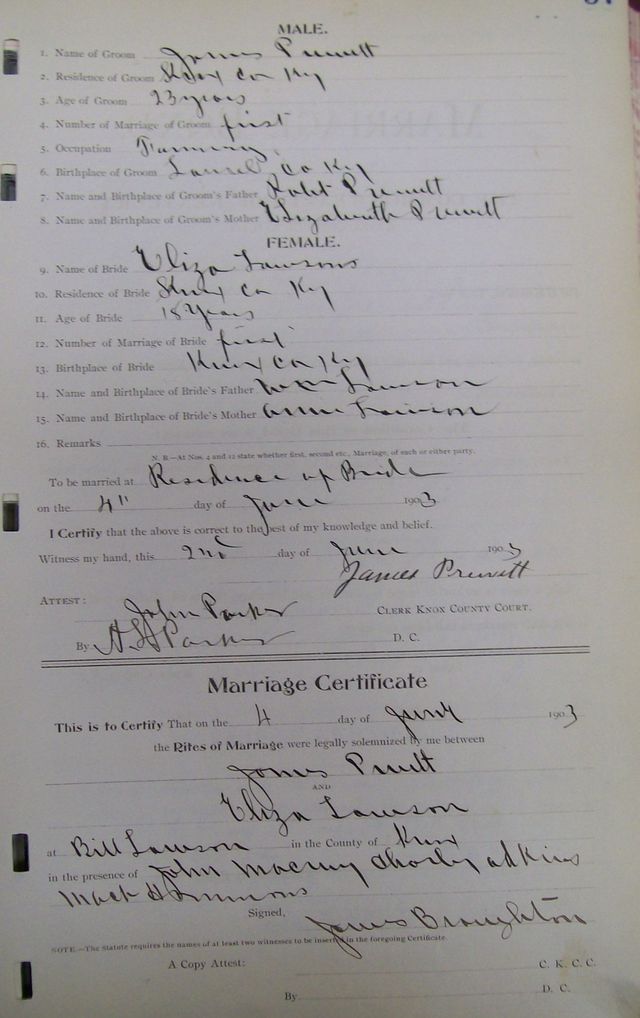 MALE.
1. Name of Groom James Prewitt
2. Residence of Groom Knox Co Ky
3. Age of Groom 23 years
4. Number of Marriage of Groom first
5. Occupation Farming
6. Birthplace of Groom Laurel Co Ky
7. Name and Birthplace of Groom's Father Robt Prewitt
8. Name and Birthplace of Groom's Mother Elizabeth Prewitt
FEMALE.
9. Name of Bride Eliza Lawsons
10. Residence of Bride Knox Co Ky
11. Age of Bride 18 years
12. Number of Marriage of Bride first
13. Birthplace of Bride Knox Co Ky
14. Name and Birthplace of Bride's Father Wm Lawson
15. Name and Birthplace of Bride's Mother Anne Lawson
16. Remarks
N. B.—At Nos. 4 and 12 state whether first, second etc., Marriage, of each or either party.
To be married at Residence of Bride
on the 4" day of June 1903
I Certify that the above is correct to the best of my knowledge and belief.
Witness my hand, this 2nd day of June 1903
James Prewitt
ATTEST:
John Parker CLERK KNOX COUNTY COURT.
By Parker D. C.
Marriage Certificate
This is to Certify That on the 4 day of June 1903
the Rites of Marriage were legally solemnized by me between
James Pruitt
AND
Eliza Lawson
at Bill Lawson in the County of Knox
in the presence of John Charley Adkins
Mack Simmons
Signed, James Broughton
NOTE.—The Statute requires the names of at least two witnesses to be inserted in the foregoing Certificate.
A Copy Attest: C. K. C. C.
By D. C.